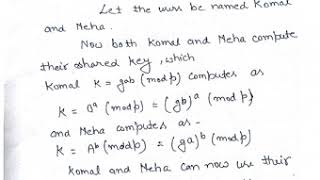 Let the users be named Komal
and Meha.
Now both Komal and Meha compute
their shared key, which
Komal K = gab (mod p) computes as
K = B^a (mod p) = (gb)^a (mod p)
and Meha computes as -
K = A^b (mod p) = (ga)^b (mod p)
Komal and Meha can now use their